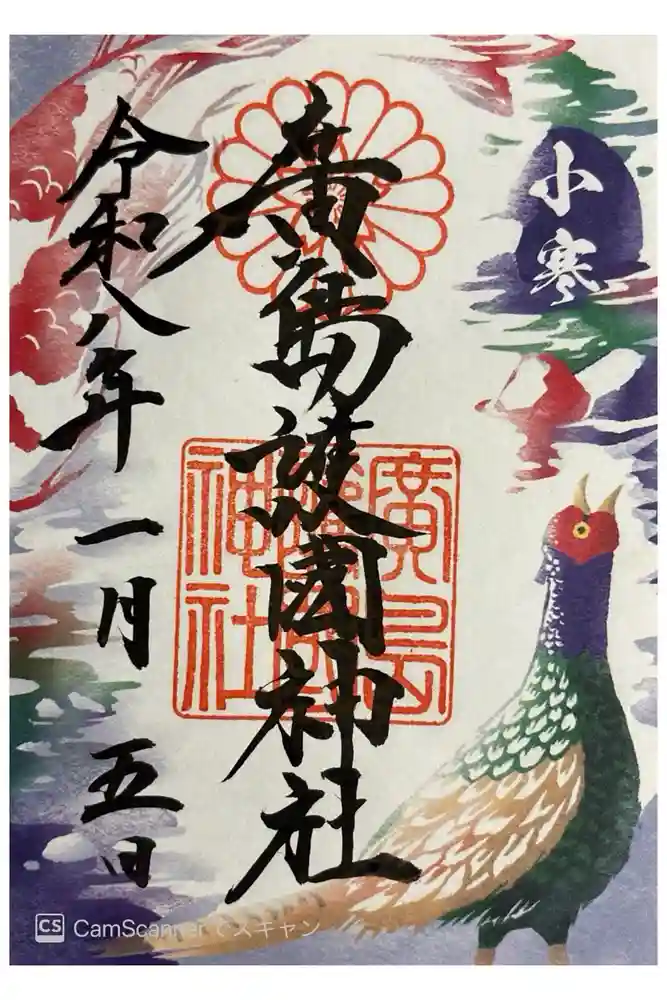 小寒
廣島護國神社
廣島護國神社
令和八年一月五日
CS CamScannerでスキャン